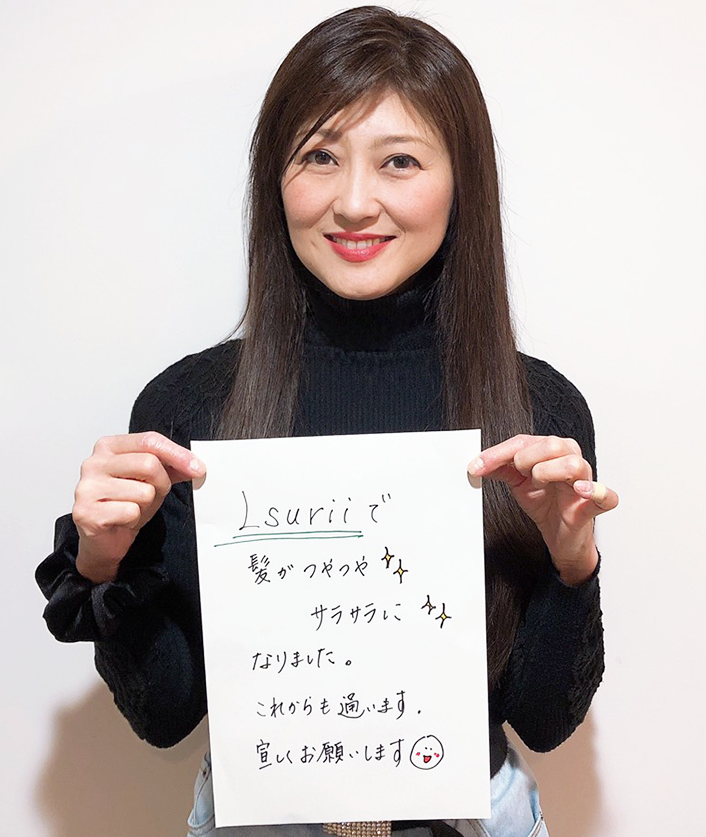 Lsuriiで
髪がつやつや
サラサラに
なりました。
これからも通います。
宜しくお願いします